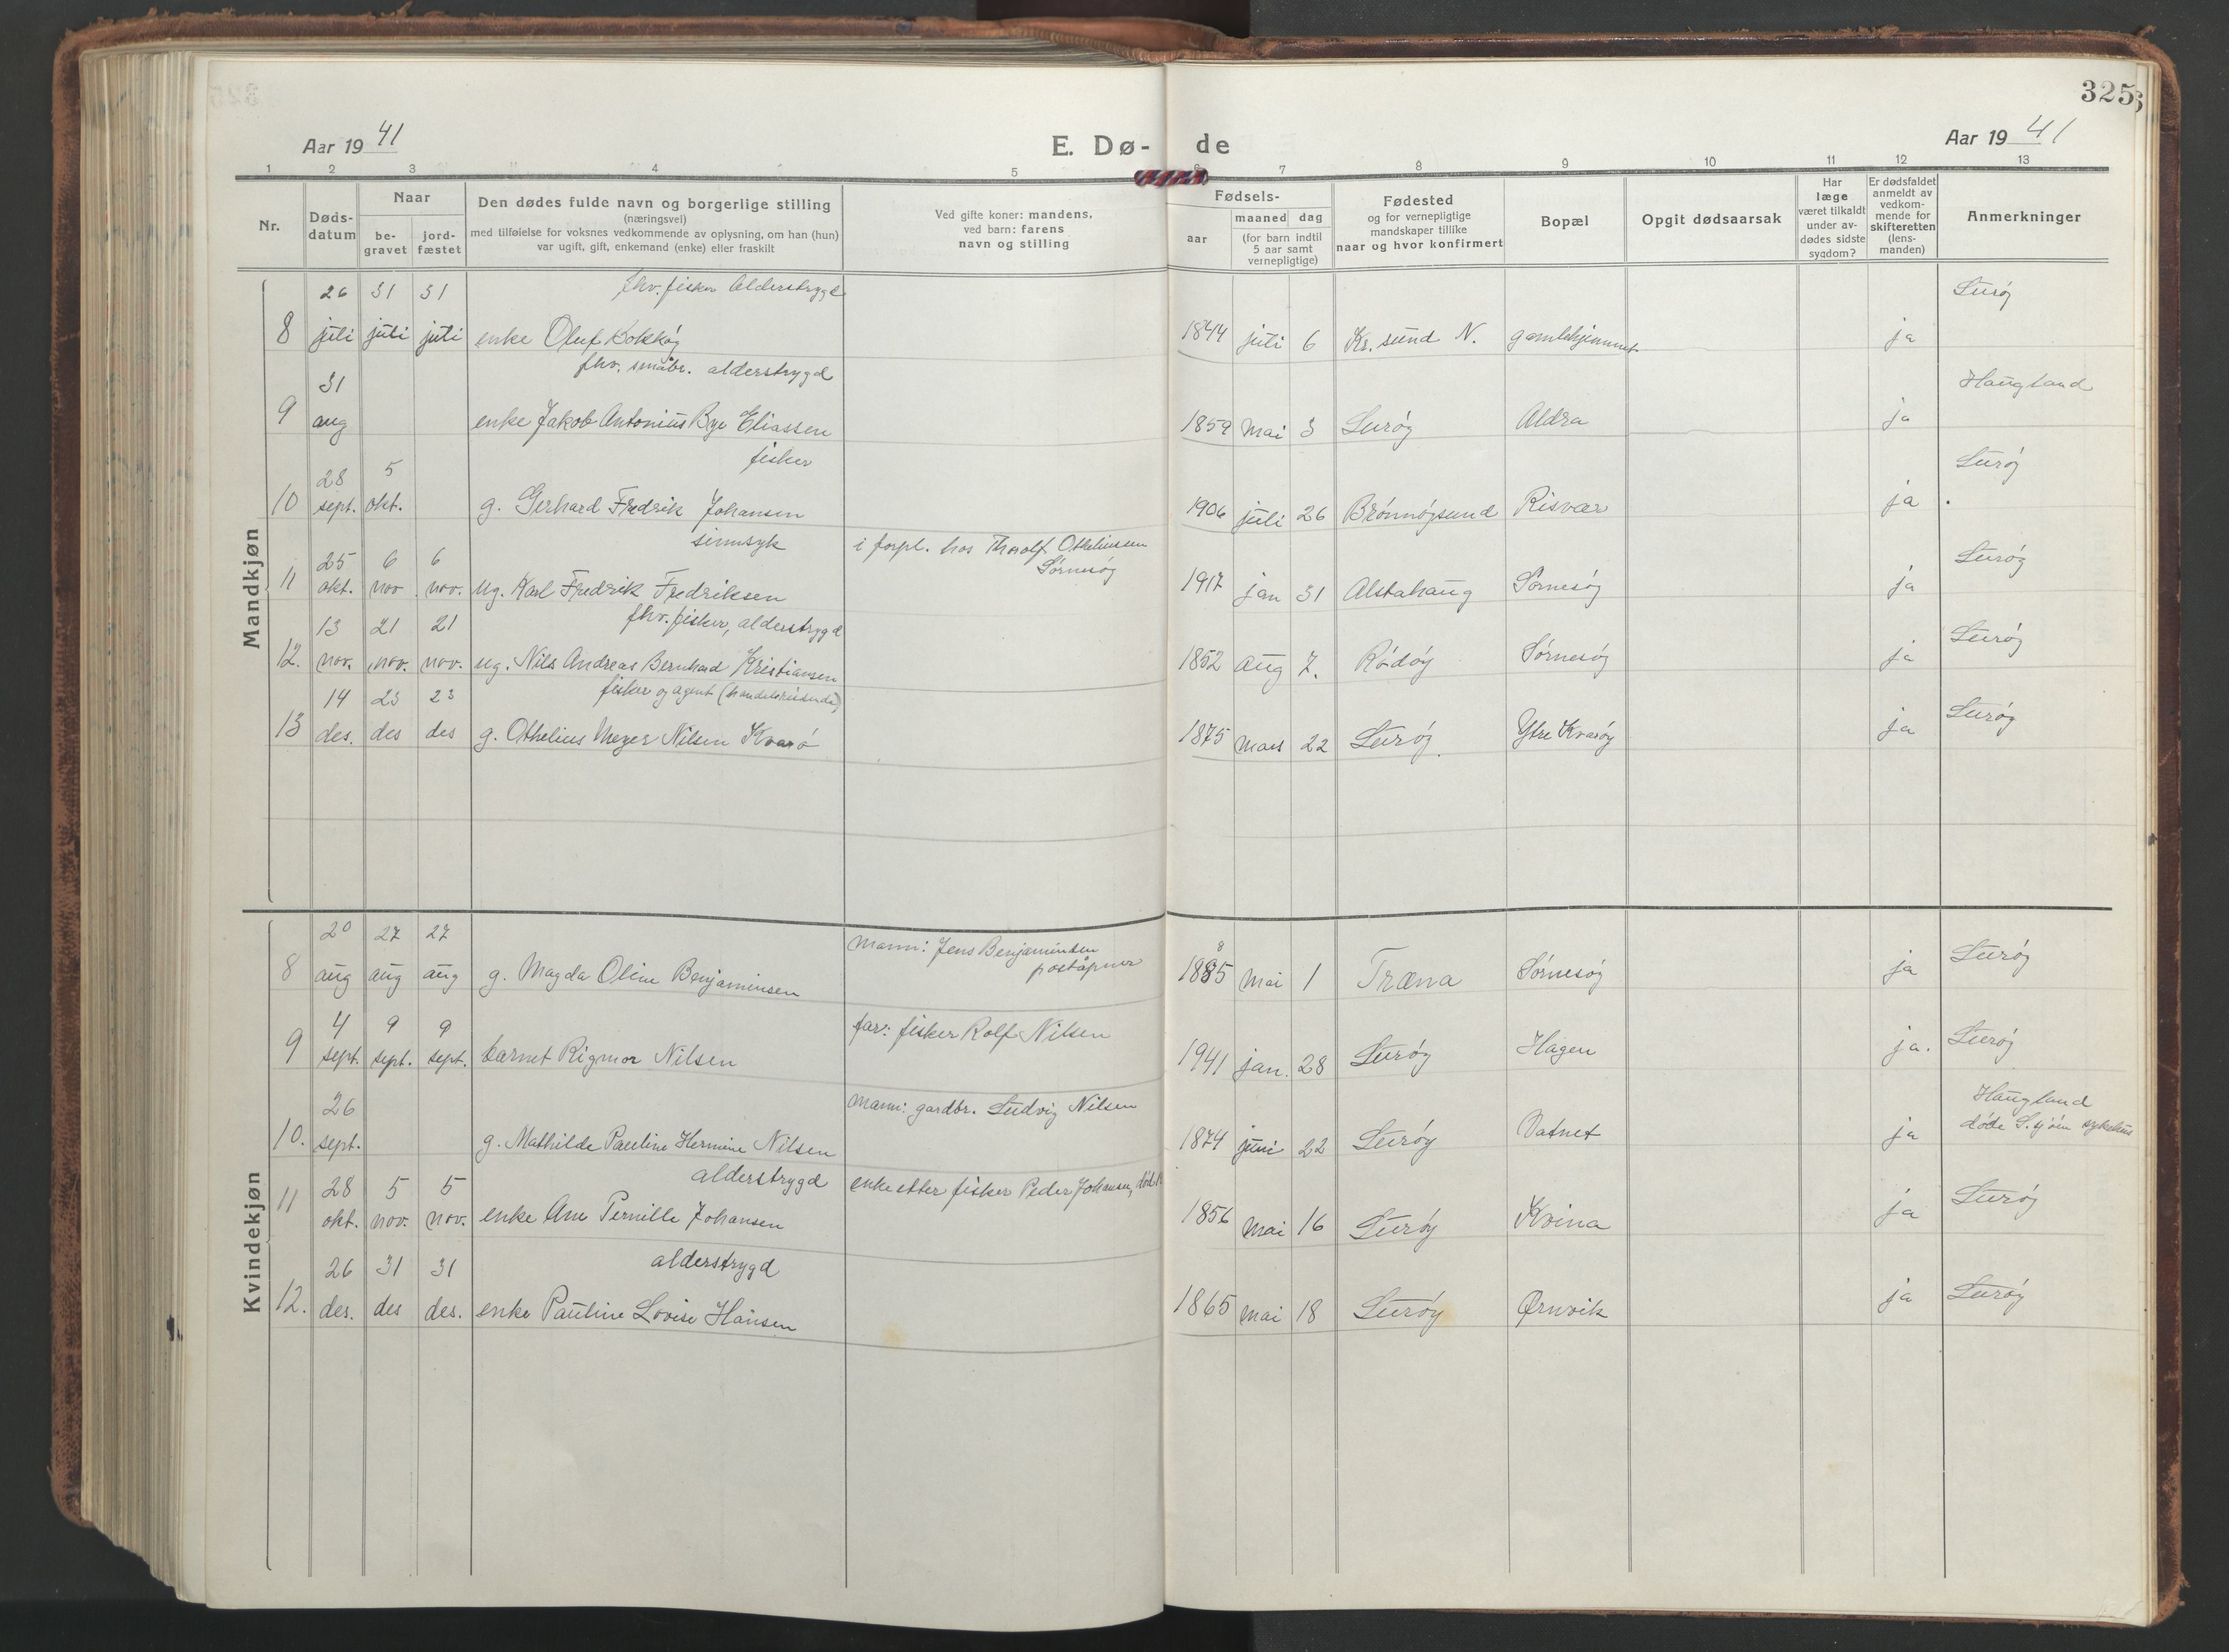 325
Aar 1941
E. Dø- de
Aar 1941
1 2 3 4 5 6 7 8 9 10 11 12 13
Nr.
Dødsdatum
Naar
begravet
jordfæstet
Den dødes fulde navn og borgerlige stilling
(næringsvei)
med tilføielse for voksnes vedkommende av oplysning, om han (hun)
var ugift, gift, enkemand (enke) eller fraskilt
Ved gifte koner: mandens,
ved barn: farens
navn og stilling
Fødsels-
aar
maaned dag
(for barn indtil
5 aar samt
vernepligtige)
Fødested
og for vernepligtige
mandskaper tillike
naar og hvor konfirmert
Bopæl
Opgit dødsaarsak
Har
læge
været tilkaldt
under av-
dødes sidste
sygdom?
Er dødsfaldet
anmeldt av
vedkom-
mende for
skifteretten
(lens-
manden)
Anmerkninger
Mandkjøn
26 31 31 fhv. fisker Alderstrygd Lurøy
8 juli juli juli enke Oluf Bokkøy 1844 juli 6 Kr. sund N. gamlehjemmet ja
31 fhv. småbr. alderstrygd Haugland
9 aug enke Jakob Antonius Bye Eliassen 1859 Mai 3 Lurøy Aldra ja
28 5 fisker Lurøy
10 sept. okt. g. Gerhard Fredrik Johansen 1906 juli 26 Brønnøysund Risvær ja
25 6 6 sinnsyk i forpl. hos Thoralf Otheliussen Lurøy
Sørnesøy
11 okt. nov. nov. ug. Karl Fredrik Fredriksen 1917 jan 31 Alstahaug Sørnesøy ja
13 21 21 fhv. fisker, alderstrygd Lurøy
12. nov. nov. nov. ug. Nils Andreas Bernhard Kristiansen 1852 Aug 7. Rødøy Sørnesøy ja
14 23 23 fisker og agent (handelsreisende) Lurøy
13 des. des des g. Othelius Meyer Nilsen Kvarø 1875 Mars 22 Lurøy Ytre Kvarøy ja
Kvindekjøn
20 27 27 Mann: Jens Benjaminsen 8 Lurøy
poståpner
8 aug aug aug g. Magda Oline Benjaminsen 1885 Mai 1 Træna Sørnesøy ja
4 9 9 far: fisker Rolf Nilsen Lurøy
9 sept. sept. sept. barnet Rigmor Nilsen 1941 jan. 28 Lurøy Hagen ja.
26 Mann: gardbr. Ludvig Nilsen Haugland
døde S.sjøen sykehus
10. sept. g. Mathilde Pauline Hermine Nilsen 1874 juni 22 Lurøy Vatnet ja
28 5 5 alderstrygd enke etter fisker Peder Johansen, Lurøy
11 okt. nov. nov. enke Ane Pernille Johansen 1856 Mai 16 Lurøy Kvina ja
26 31 31 alderstrygd Lurøy
12. des. des des. enke Pauline Lovise Hansen 1865 mai 18 Lurøy Ørnvik ja